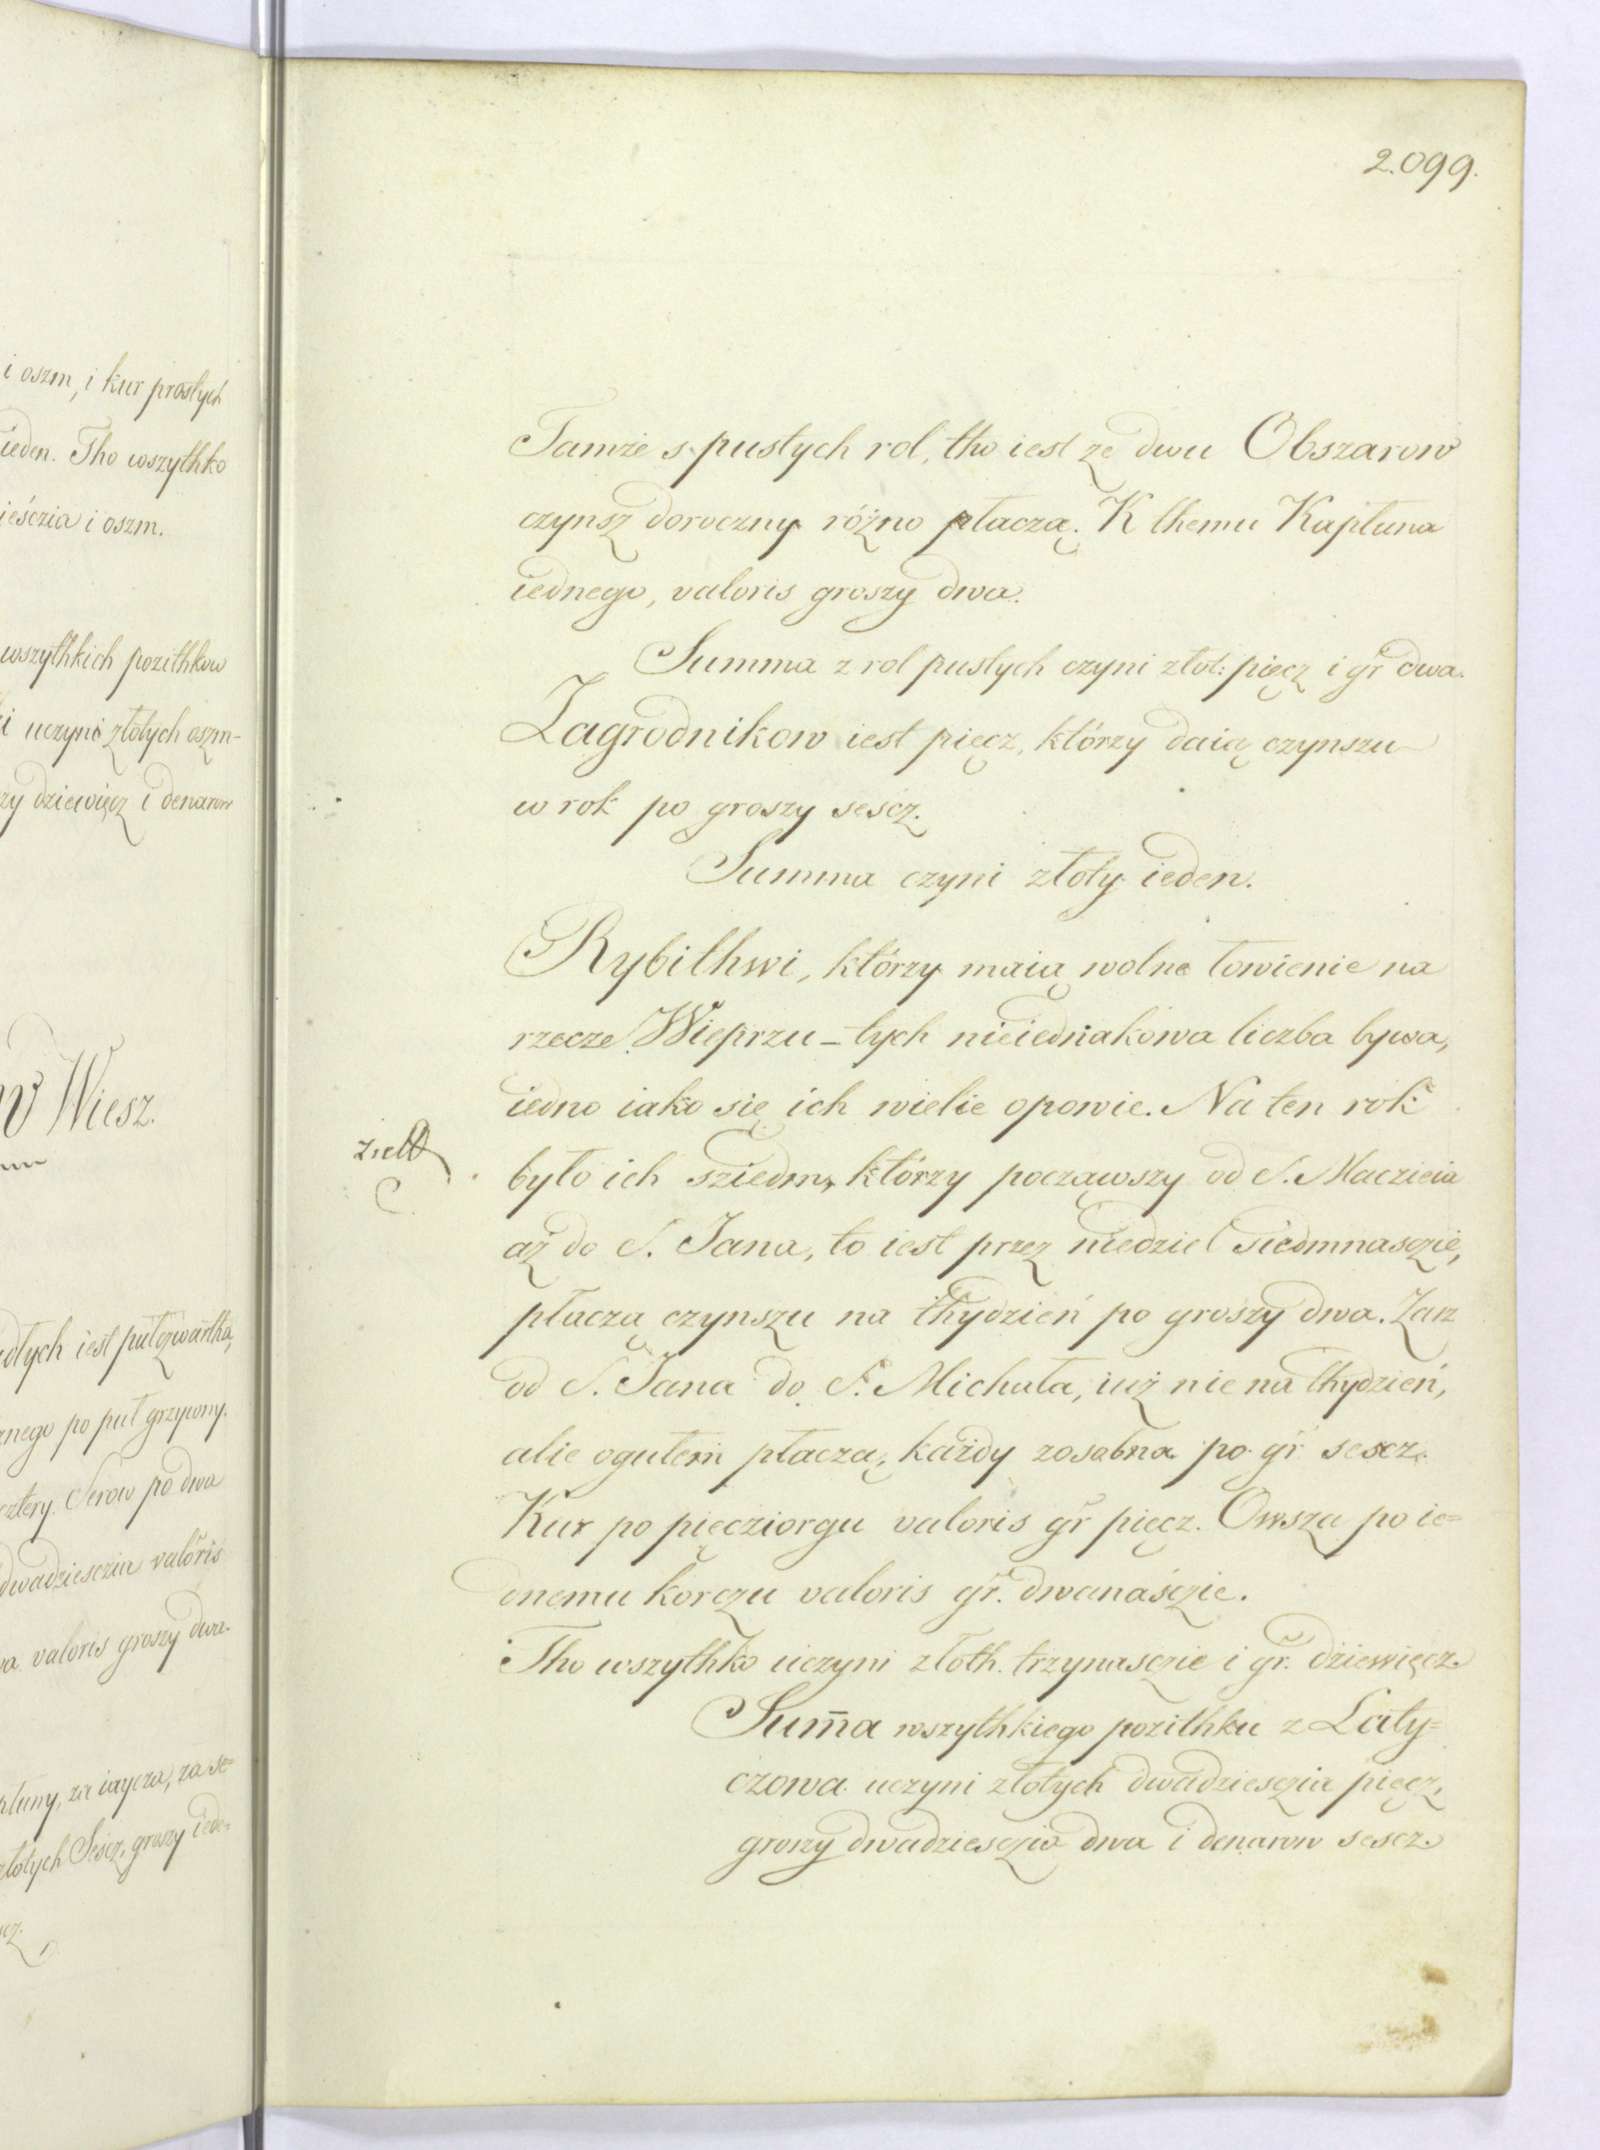 i oszm, i kur prostych
ieden. Tho wszythko
ieśczia i oszm.
wszythkich pozithkow
i uczyni złotych oszm-
zy dziewięcz i denarow
w Wiesz.
dłych iest pułczwartha,
nego po puł grzywny.
cztery. Serow po dwa
dwadziesczia valoris
wa valoris groszy dwa.
płuny, za iaycza, za se-
złotych Sescz, groszy iede-
2.099.
Tamże s pustych rol, tho iest ze dwu Obszarow
czynsz doroczny różno płaczą. K themu Kapłuna
iednego, valoris groszy dwa.
Summa z rol pustych czyni złot: pięcz i gr dwa.
Zagrodnikow iest pięcz, którzy daią czynszu
w rok po groszy sescz.
Summa czyni złoty ieden.
Rybithwi, którzy maią wolne łowienie na
rzecze Wieprzu – tych nieiednakowa liczba bywa,
iedno iako się ich wielie opowie. Na ten rok
było ich sziedm, którzy począwszy od S. Maczieia
aż do S. Jana, to iest przez niedziel siedmnasczie,
płaczą czynszu na thydzień po groszy dwa. Zasz
od S. Jana do S. Michała, iuż nie na thydzień,
alie ogułem płaczą, każdy zosobna po gr sescz.
Kur po pięcziorgu valoris gr pięcz. Owsza po ie=
dnemu korczu valoris gr. dwanaśczie.
Tho wszythko uczyni złoth. trzynasczie i gr. dziewięcz.
Sum̄a wszythkiego pozithku z Laty=
czowa uczyni złotych dwadziesczia pięcz,
groszy dwadziesczia dwa i denarow sescz.